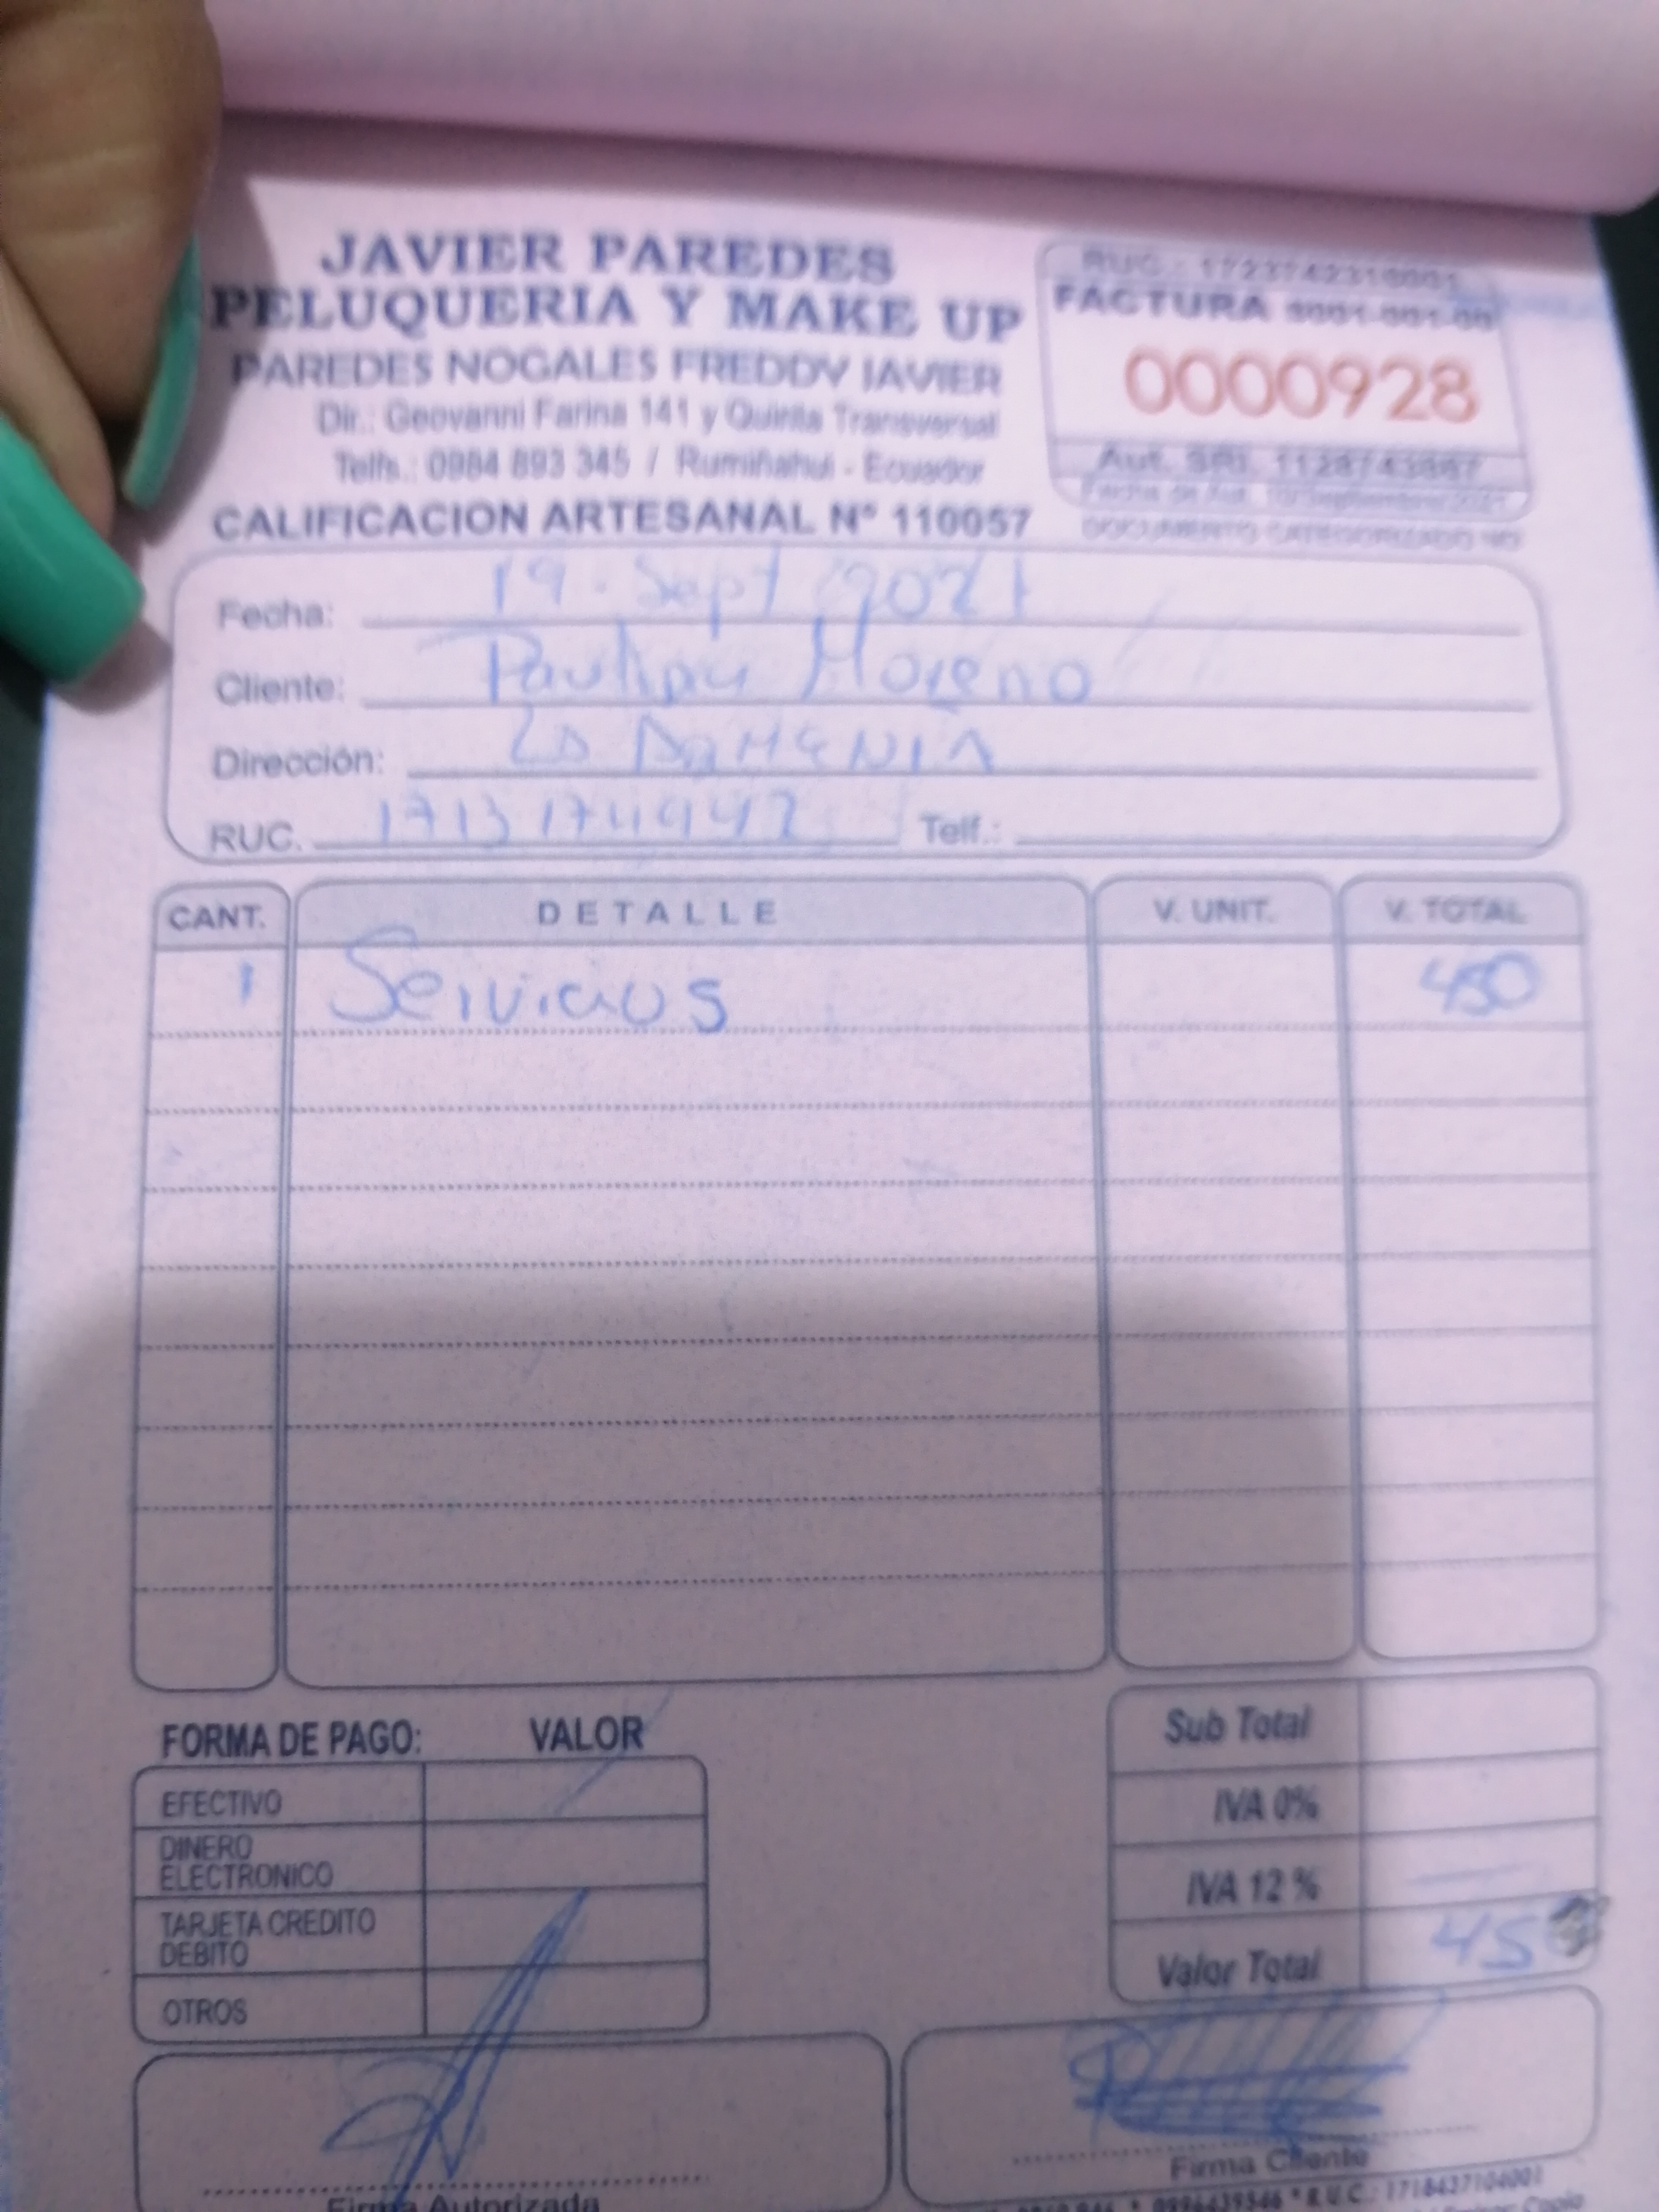 JAVIER PAREDES
PELUQUERIA Y MAKE UP
PAREDES NOGALES FREDDY JAVIER
Dir.: Geovanni Farina 141 y Quinta Transversal
Telfs.: 0984 893 345 / Rumiñahui - Ecuador
CALIFICACION ARTESANAL N° 110057
RUC.: 1723742316001
FACTURA S001-001-00
0000928
Aut. SRI. 1128743867
Fecha de Aut. 10/Septiembre/2021
DOCUMENTO CATEGORIZADO NO
Fecha: 19 - Sept / 2021
Cliente: Paulina Moreno
Dirección: LA ARMENIA
RUC. 1713174942 Telf.:
CANT. DETALLE V. UNIT. V. TOTAL
1 Servicios 450
FORMA DE PAGO: VALOR
EFECTIVO
DINERO
ELECTRONICO
TARJETA CREDITO
DEBITO
OTROS
Sub Total
IVA 0%
IVA 12 %
Valor Total 45
Firma Autorizada
Firma Cliente
0996439546 * R.U.C.: 1718437104001